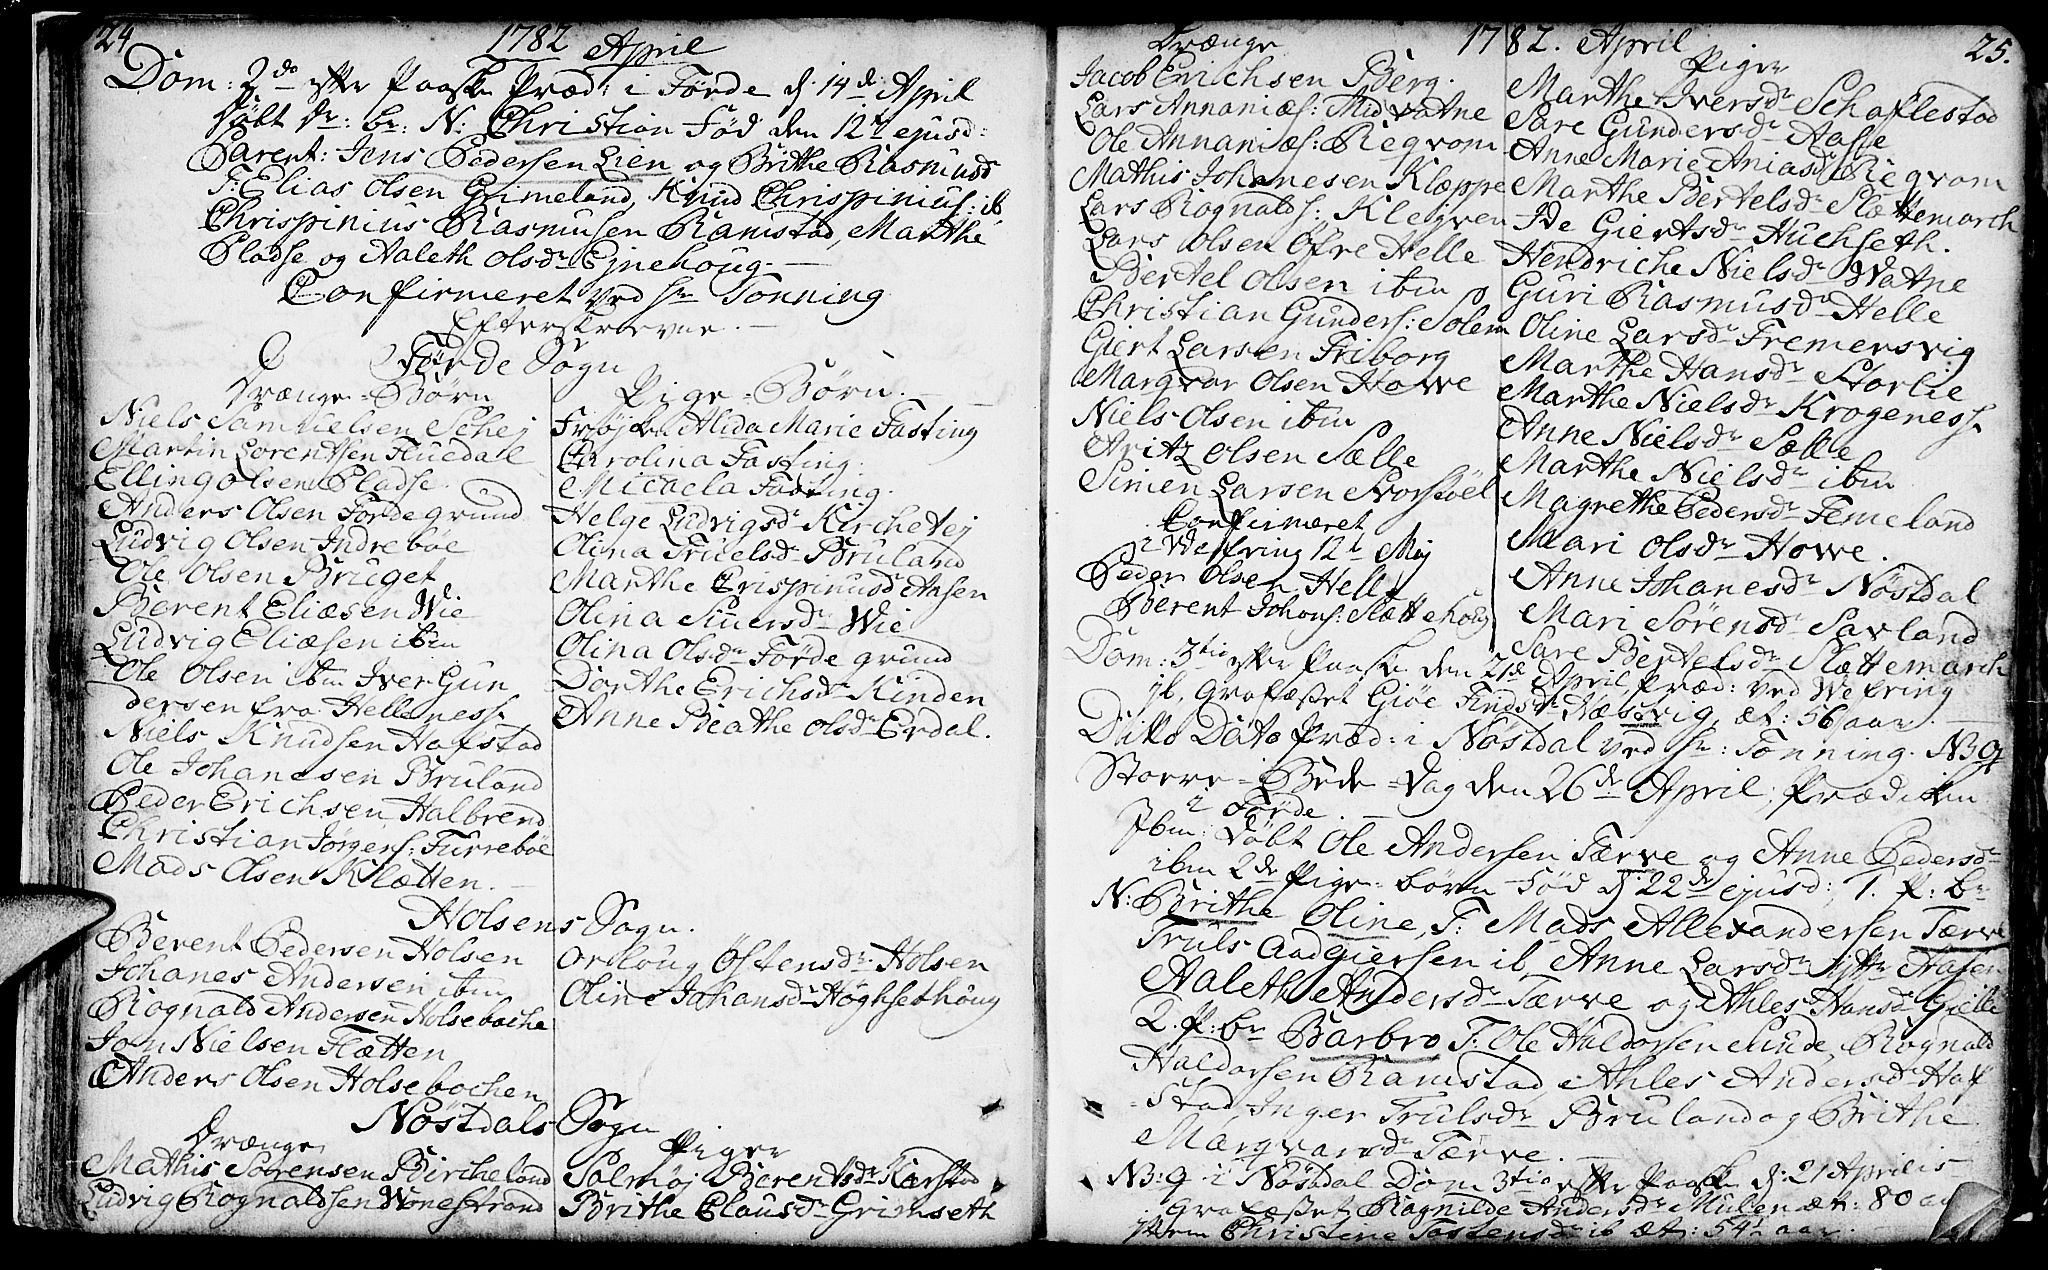 24
1782 April
Dom: 2do efter Paaske Præd: i Förde d: 14de April
Döbt Dr: br: N: Christian Föd den 12te ejusd:
Parent: Jens Pedersen Lien og Brithe Rasmusd
F: Elias Olsen Grimeland, Knud Chrispinius: ib
Chrispinius Rasmusen Ramstad, Marthe
Pladse og Aaleth Olsdr Ejnehoug.
Confirmeret ved Hr Tonning
Efterskrevne.
Förde Sogn
Drænge-Börn
Niels Samuelsen Schej
Martin Lorentsen Huedal
Elling Olsen Pladse
Anders Olsen Förde grund
Ludvig Olsen Indreböe
Ole Olsen Bruget
Berent Eliæsen Wie
Ludvig Eliæsen ibm
Ole Olsen ibm Iver Gun
dersen fra Helleness.
Niels Knudsen Hafstad
Ole Johanesen Bruland
Peder Erichsen Halbrend
Christian Jörgens: Furreböe
Mads Olsen Klætten.
Pige-Börn.
Fröjke Alida Marie Fasting
Carolina Fasting.
Micaela Fasting.
Helge Ludvigsdr Kirchevej
Olina Truelsdr Bruland
Marthe Crispinusd Aasen
Olina Siuersdr Wie
Olina Olsdr Förde grund
Dorthe Erichsdr Kinden
Anne Beathe Olsdr Erdal.
Holsens Sogn.
Berent Pedersen Holsen
Johanes Andersen ibm
Rognald Andersen Holsebache
Jon Nielsen Flætten
Anders Olsen Holsebachen
Orloug Östensdr Holsen
Oline Johansdr Höghsethoug
Nöstdals Sogn
Drænge
Mathis Sörensen Bircheland
Ludvig Rognaldsen Wonestrand
Piger
Solmöj Berentsdr Karstad
Brithe Clausdr Grimseth
1782. April
25.
Drænge
Jacob Erichsen Berg.
Lars Annaniæs: Midvatne
Ole Annaniæs: Reqvam
Mathis Johanesen Klæppe
Lars Rognalds: Kleiven
Lars Olsen Öfre Helle
Bertel Olsen ibm
Christian Gunders: Solem
Giert Larsen Friborg
Marqvar Olsen Howe
Niels Olsen ibm
Fritz Olsen Sælle
Simen Larsen Storstöel
Confirmeret
i Wefring 12te Mij
Peder Olsen Helle
Berent Johans: Slættehoug
Piger
Marthe Iversdr Schaflestad
Sare Gundersdr Aasse
Anne Marie Aniasdr Reqvam
Marthe Bertelsdr Slættemarch
Ide Giertsdr Huchseth.
Hendriche Nielsdr Watne
Guri Rasmusdr Helle
Oline Larsdr Fremersvig
Marthe Hansdr Storlie
Marthe Nielsdr Krogeness.
Anne Nielsdr Sælle
Marthe Nielsdr ibm
Magrethe Pedersdr Femeland
Mari Olsdr Howe.
Anne Johanesdr Nöstdal
Mari Sörensdr Savland
Sare Bertelsdr Slættemarch
Dom: 3tio efter Paaske den 21de April Præd: ved Wefring
ib. Grafæstet Giöe Findsdr Næssvig, æt: 56 aar.
Ditto Dato Præd: i Nöstdal ved Hr: Tonning. NB 9
Storre-Bede-Dag den 26de April, Prædiken
i Förde.
Ibm: Döbt Ole Andersen Tærve og Anne Pedersdr
ibm 2de Pige-börn Föd d: 22de ejusd: 1. P: br
N: Brithe Oline, F: Mads Allexandersen Tærve
Truls Andgiersen ib Anne Larsdr Ytte Frasen
Aaleth Andersdr Tærve og Ahles Hansdr Gielle
2. P: br Barbro F: Ole Haldorsen Sunde, Rognald
Haldorsen Ramstad, Ahles Andersdr Haf
stad Inger Trulsdr Bruland og Brithe
Marqvardsdr Tærve.
NB: 9 i Nöstdal Dom 3tio efter Paaske d: 21 Aprilis
Grafæstet Ragnilde Andersdr Mulen æt: 80 aar
Item Christine Tostensdr ib æt: 54 1/2 aar.